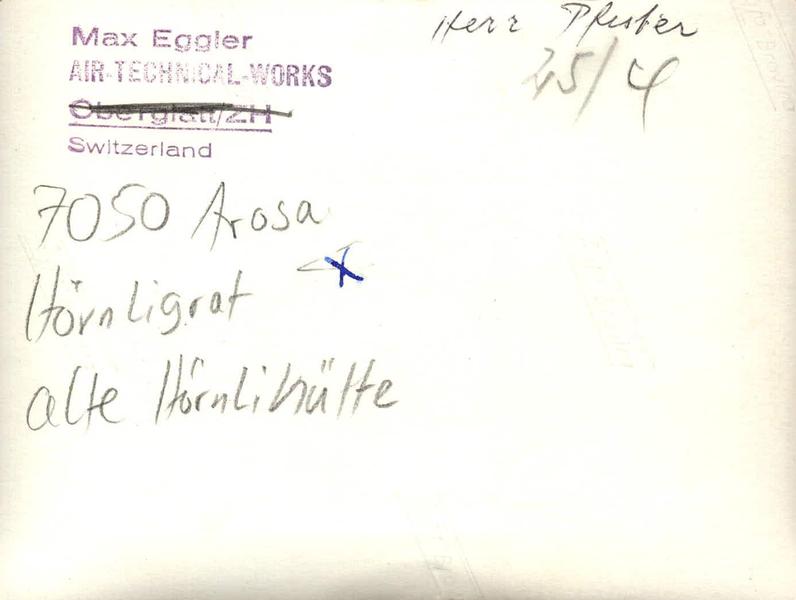 Max Eggler
AIR-TECHNICAL-WORKS
Oberglatt/ZH
Switzerland
Herr
25/4
7050 Arosa
Hörnligrat
alte Hörnlihütte